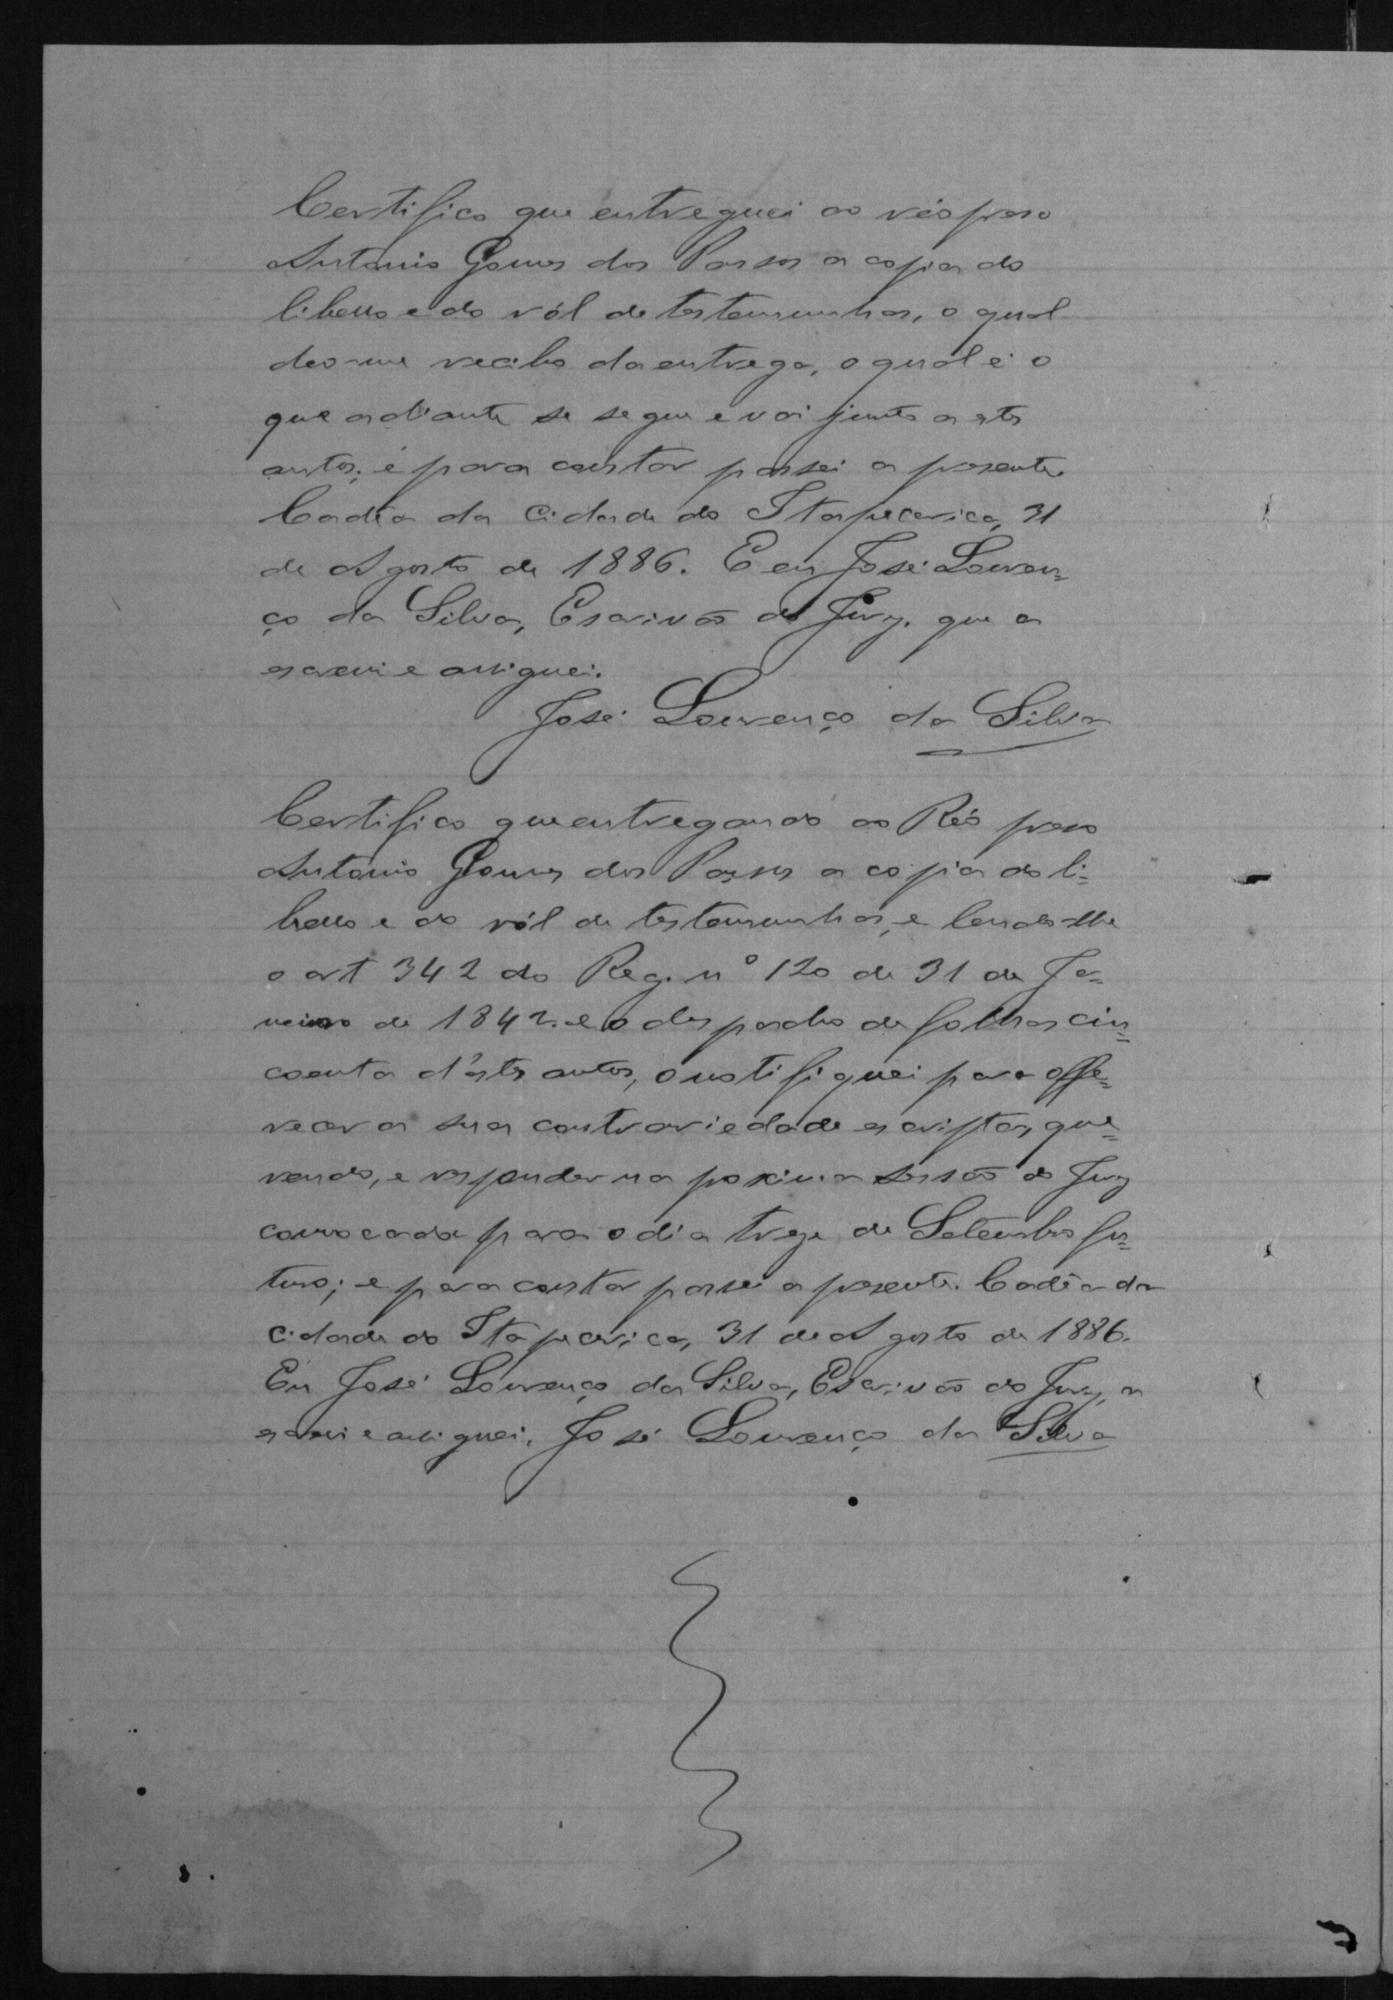 Certifico que entreguei ao réo preso
Antonio Gomes dos Passos a copia do
libello e do ról de testemunhas, o qual
deo-me recibo da entrega, o qual é o
que adiante se segue e vai junto a estes
autos; e para constar passei a presente.
Cadêa da Cidade de Itapecerica, 31
de Agosto de 1886. E eu José Louren=
ço da Silva, Escrivão do Jury, que a
escrevi e assignei.
José Lourenço da Silva
Certifico que entregando ao Réo preso
Antonio Gomes dos Passos a copia do li=
bello e do ról de testemunhas, e lendo-lhe
o art 342 do Reg. nº 120 de 31 de Ja=
neiro de 1842. e o despacho de folhas cin=
coenta d'estes autos, o notifiquei para offe=
recer a sua contrariedade escripta, que=
rendo, e responder na proxima sessão do Jury
convocada para o dia treze de Setembro fu=
turo; e para constar passei a presente. Cadêa da
cidade de Itapecerica, 31 de Agosto de 1886.
Eu José Lourenço da Silva, Escrivão do Jury, a
escrevi e assignei. José Lourenço da Silva